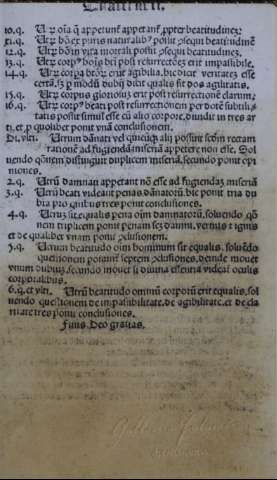 10.q. Utrũ oĩa q̃ appetunt̃ appetant̃ ꝓpter beatitudinez
11.q. Utrũ hõ ex puris naturalibꝰ possit ꝓsequi beatitudinẽ
12.q. Utrũ hõ in vita mortali possit ꝓsequi beatitudinez.
13.q. Utrũ corpꝰ hoĩs bti post resurrectõez erit impassibile.
14.q. Utrũ corpa btõrũ erũt agibilia, hic dicit veritatez esse
certã, sz ꝑ modũ dubij dicit qualis fit dos agilitatis.
15.q. Utrũ corpus gloriosũ erit post resurrectionẽ clarum.
16.q. Utrũ corpꝰ beati post resurrectionem per dotẽ subtili
tatis possit simul esse cũ alio corpore, diuidit in tres ar
ti. et ꝓ quolibet ponit vnã conclusionem.
Di. vlti. Utrum dãnati vel quicũq̃ alij possint scdm rectam
rationẽ ad fugiendã miseriã appetere non esse. Sol
uendo q̃onem distinguit duplicem miseriã, secundo ponit opi
niones.
2.q. Utrũ damnati appetant nõ esse ad fugiendaz miseriã
3.q. Utrũ beati videant penas dãnatorũ. hic ponit tria du
bia pro quibus tres ponit conclusiones.
4.q. Utrum sit equalis pena oĩm damnatorũ, soluendo q̃o
nem triplicem ponit penam sez damni, vermis et ignis
et de qualibet vnam ponit conclusionem.
5.q. Utrum beatitudo oĩm hominum sit equalis. soluẽdo
questionem ponunt̃ septem conclusiones, deinde mouet
vnum dubiuz, secundo mouet si diuina essentia videat̃ oculis
corporalibus.
6.q. et vlti. Utrũ beatitudo omniũ corporũ erit equalis. sol
uendo questionem de impassibilitate, de agibilitate, et de cla
ritate tres ponit conclusiones.
Finis Deo gratias.